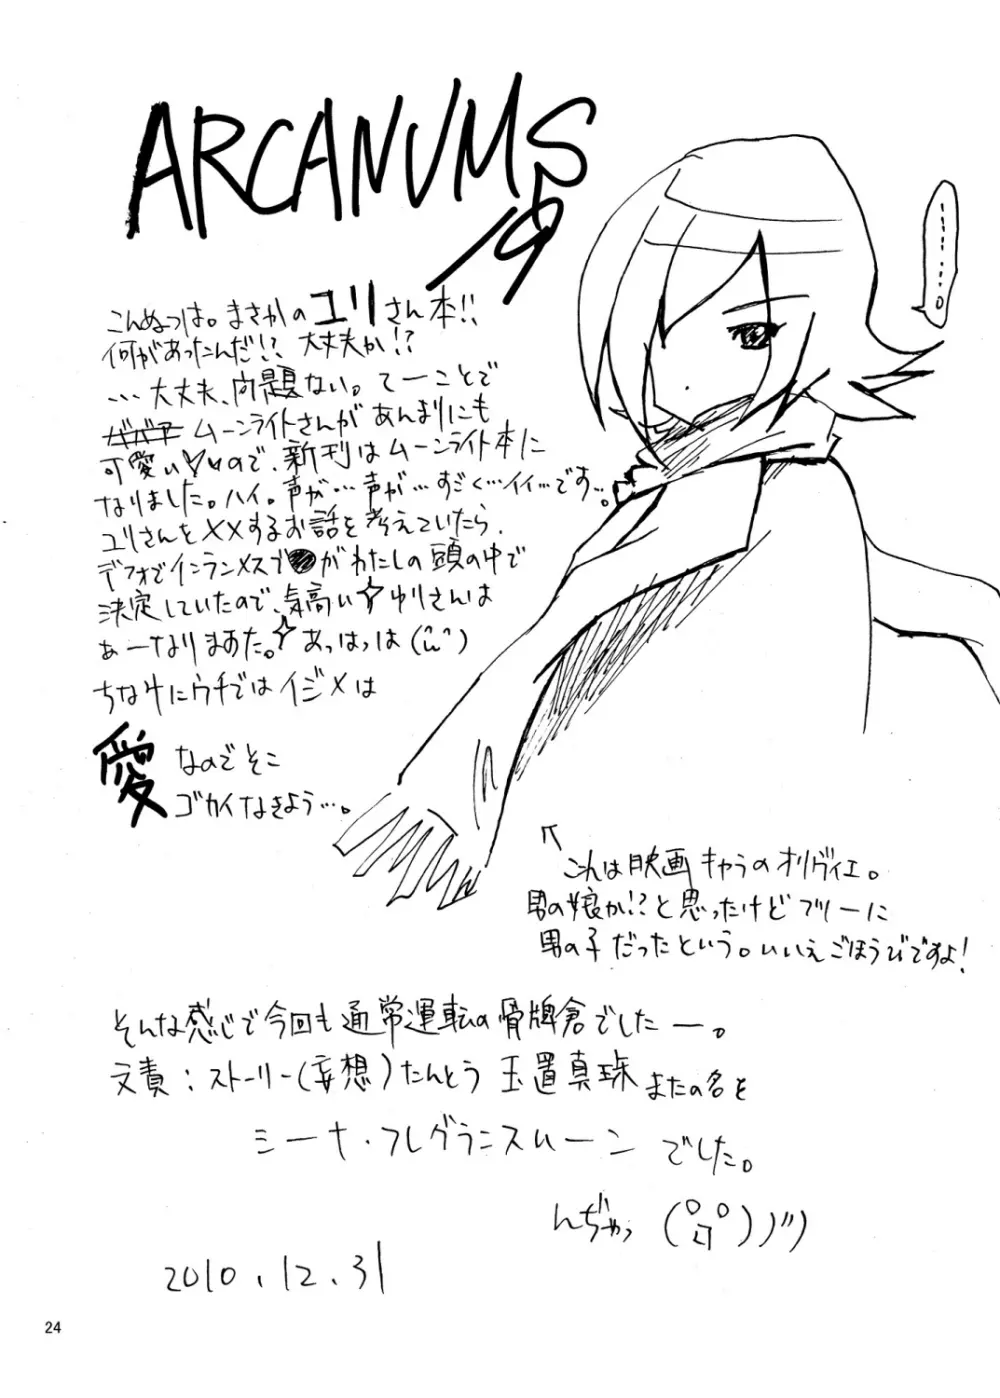 ARCANUMS
19
こんぬつは。まさかのユリさん本!!
何があったんだ!? 大丈夫か!?
…大丈夫、問題ない。てーことで
ムーンライトさんがあんまりにも
可愛い♡いので、新刊はムーンライト本に
なりました。ハイ。声が…声が…すごく…イイ…です…。
ユリさんを××するお話を考えていたら、
デフォでインランメスブ●がわたしの頭の中で
決定していたので、気高い☆ゆりさんは
あーなりまあた。☆あっはっは(^ω^)
ちなみにウチではイジメは
愛なのでそこ
ゴカイなきよう…。
………。
これは映画キャラのオリヴィエ。
男の娘か!?と思ったけどフツーに
男の子だったという。いいえごほうびですよ!
そんな感じで今回も通常運転の骨牌倉でしたー。
文責:ストーリー(妄想)たんとう 玉置真珠 またの名を
シーナ・フレグランスムーン でした。
んぢゃっ
2010.12.31
24